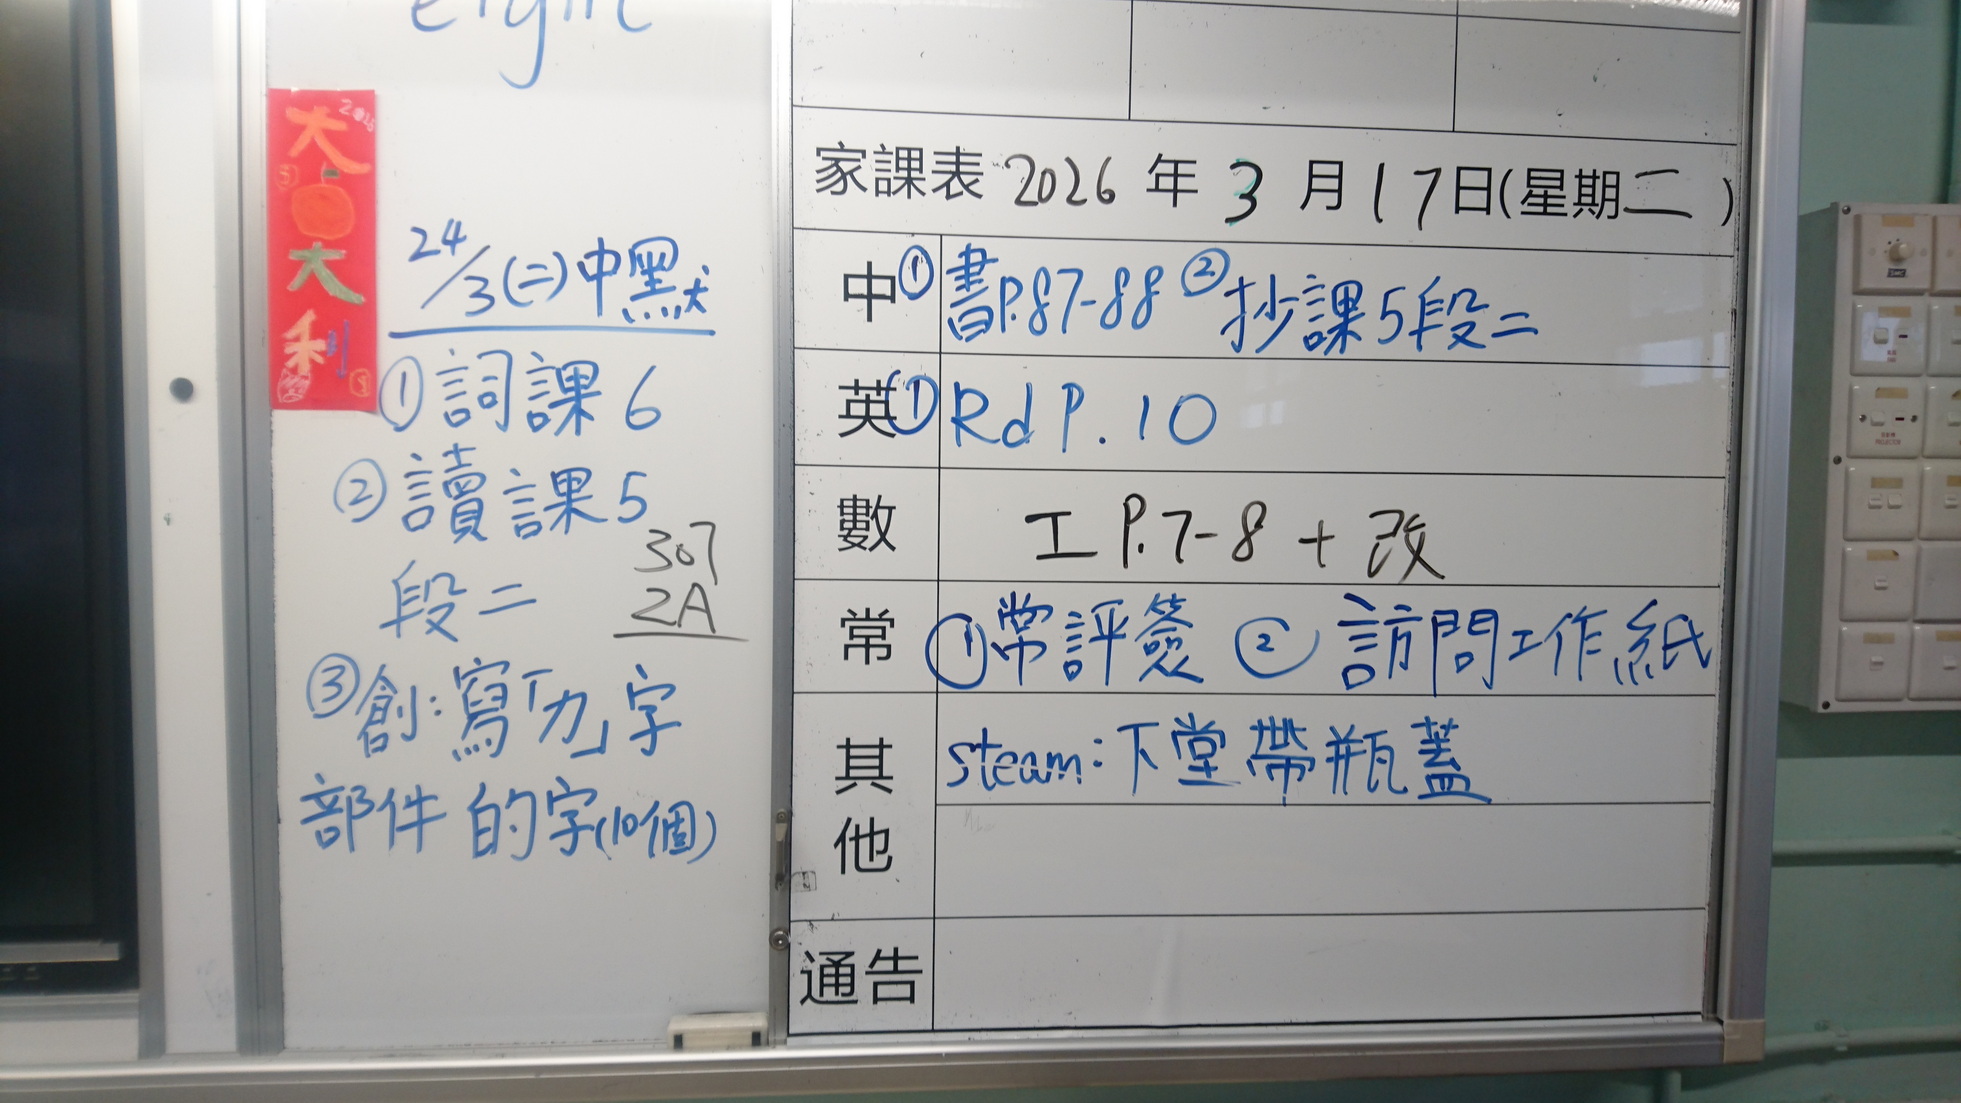 eight
2026
大
大
利
24/3(二)中默
①詞課6
②讀課5
段二
307
2A
③創:寫「力」字
部件的字(10個)
家課表 2026 年 3 月 17 日(星期二)
中 ①書P.87-88 ②抄課5段二
英 ①Rd P.10
數 工 P.7-8 + 改
常 ①常評簽 ② 訪問工作紙
其他 steam:下堂帶瓶蓋
通告